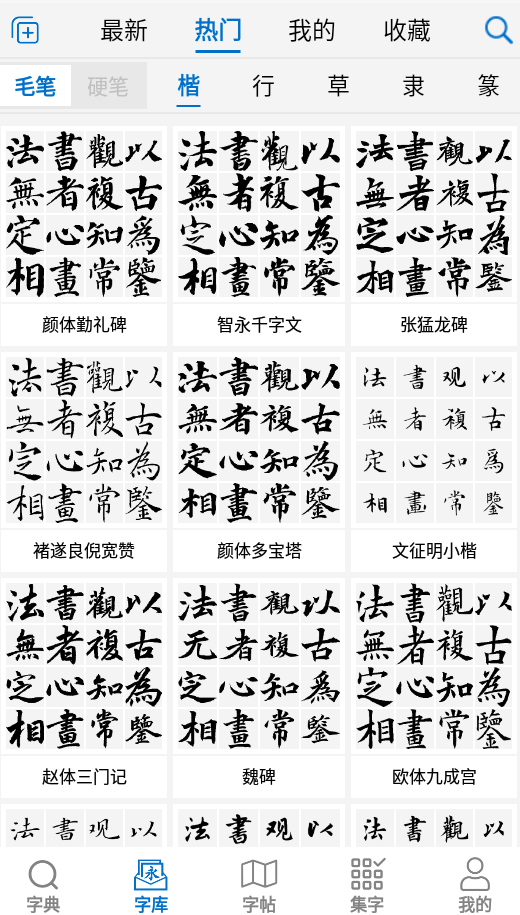 最新 热门 我的 收藏
毛笔 硬笔 楷 行 草 隶 篆
法書觀以 法書觀以 法書觀以
無者複古 無者複古 無者複古
定心知為 定心知為 定心知為
相畫常鑒 相畫常鑒 相畫常鑒
颜体勤礼碑 智永千字文 张猛龙碑
法書觀以 法書觀以 法書观以
無者複古 無者複古 無者複古
定心知為 定心知為 定心知為
相畫常鑒 相畫常鑒 相畫常鑒
褚遂良倪宽赞 颜体多宝塔 文征明小楷
法書觀以 法書觀以 法書觀以
無者複古 无者複古 無者複古
定心知為 定心知為 定心知為
相畫常鑒 相畫常鑒 相畫常鑒
赵体三门记 魏碑 欧体九成宫
法書观以 法書观以 法書觀以
永
字典 字库 字帖 集字 我的